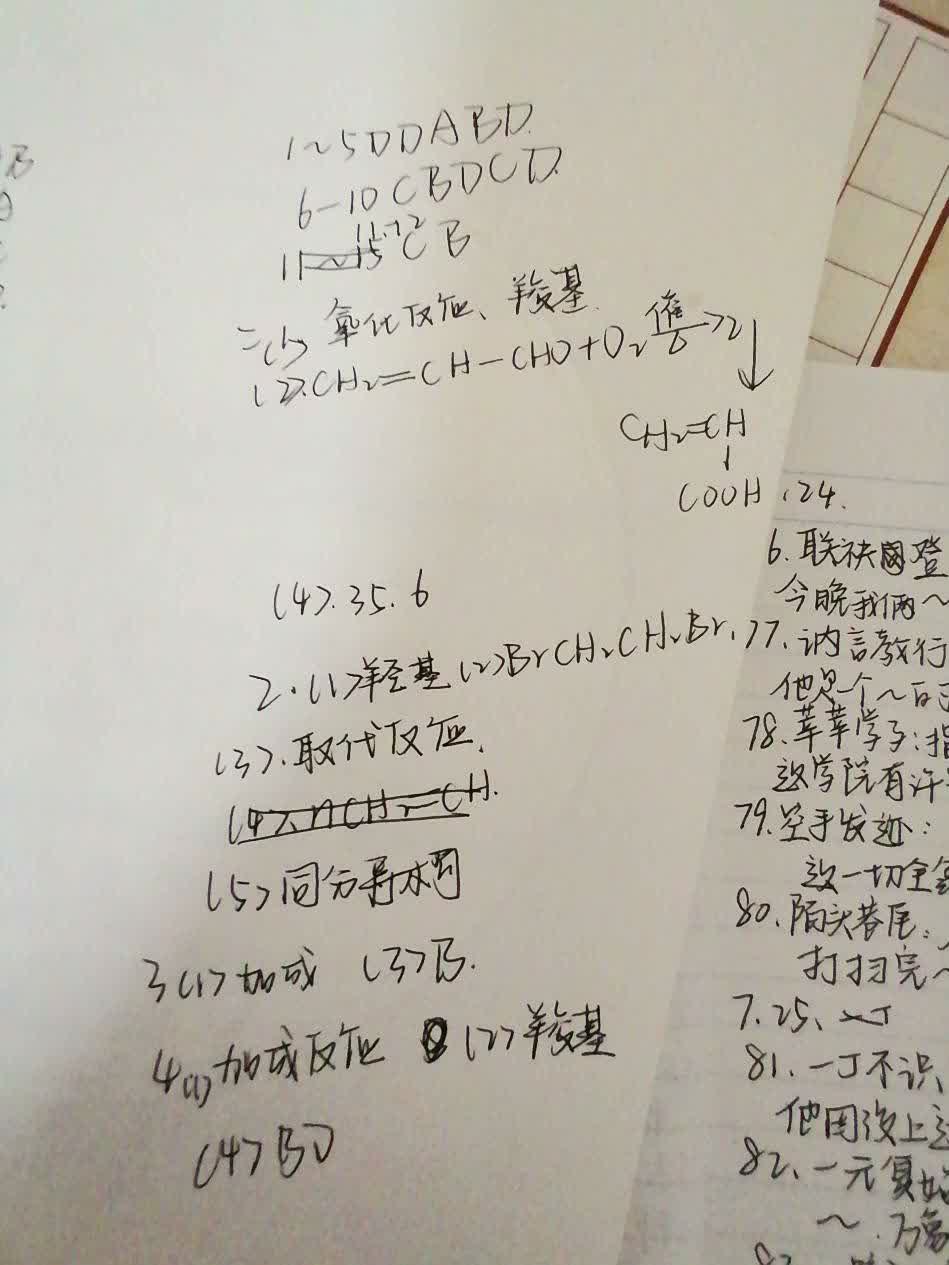 1~5DDABD.
6-10CBDCD.
11~15 11-12 CB
二(1)氧化反应、羧基.
(2).CH₂=CH-CHO+O₂ 催/△ →2
CH₂=CH
COOH
(4).35.6
2.(1)羟基(2)BrCH₂CH₂Br.
(3).取代反应.
(4).nCH₂=CH.
(5)同分异构
3(1)加成 (3)B.
4(1)加成反应 (2)羧基
(4)BD
B
.24.
6.联袂登
今晚我俩~
77.讷言敦行
他是个~
78.莘莘学子:指
这学院有许
79.空手发迹:
这一切全
80.陌头巷尾:
打扫完~
7.25、
81.一丁不识、
他因没上
82、一元复始
~.万象